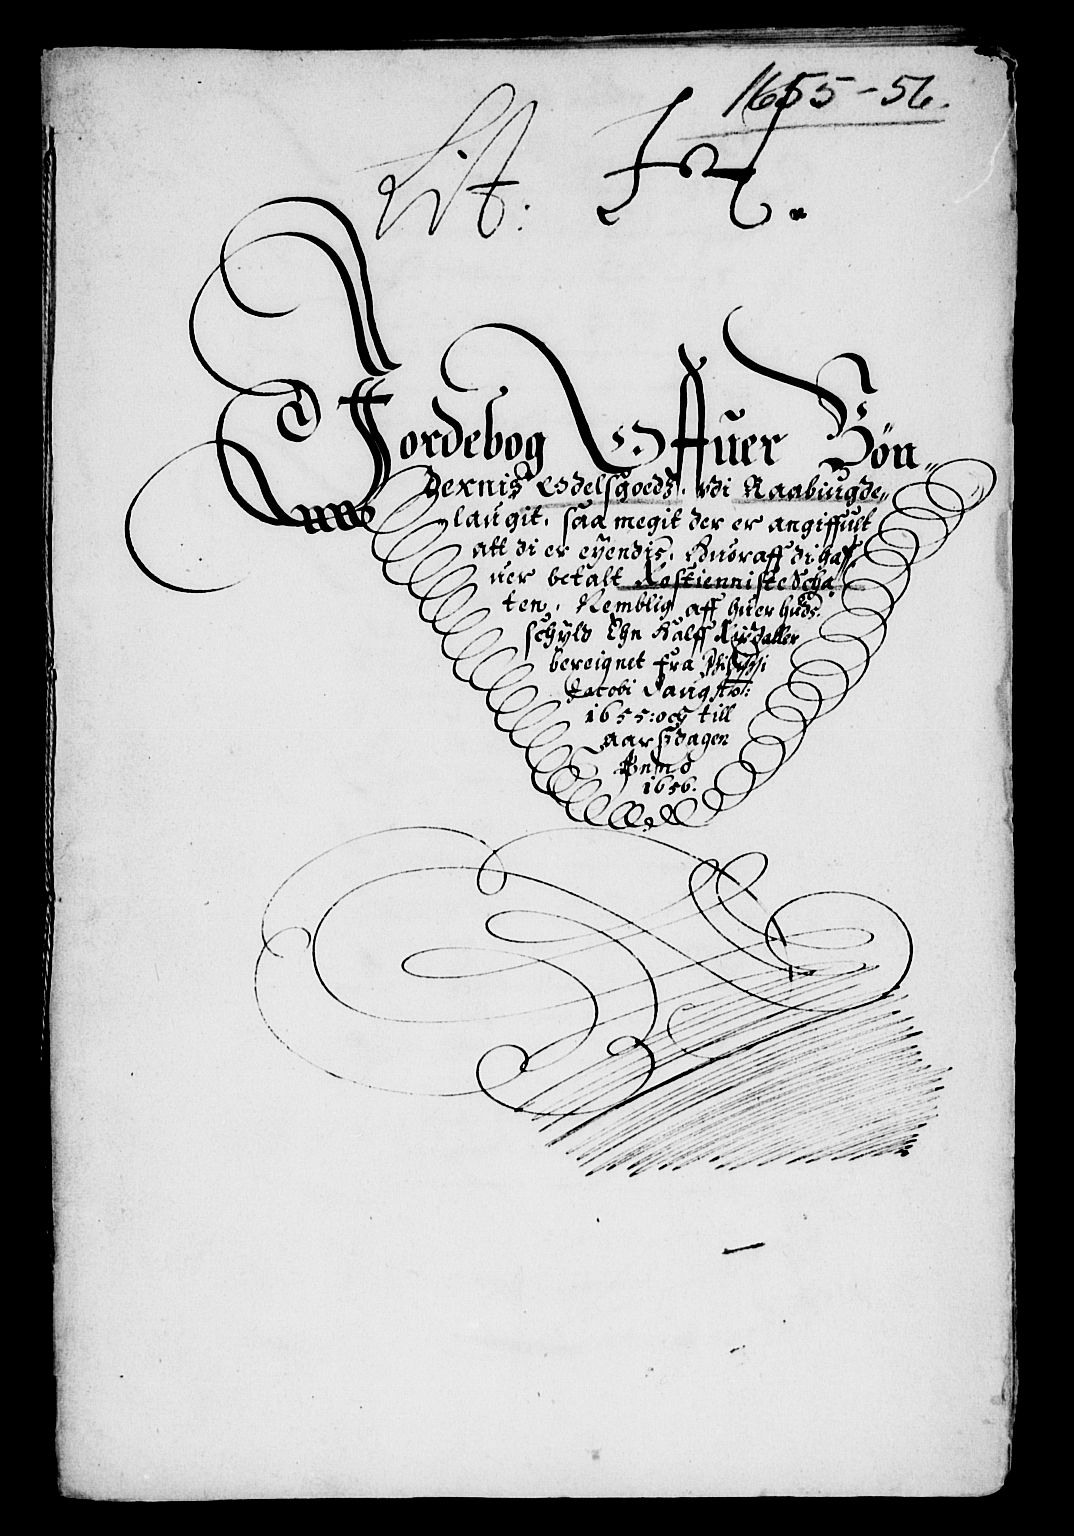 1655-56.
Lit:
Jordebog Offuer Bøn„
dernis Odelsgoedz. Vdi Raabiugde„
laugit. saa megit der er angiffuit
att di er eyendis. Huoraff di haf„
uer betalt Rostienniste Scha„
ten. Nemblig aff huer huds
schyld Ehn Halff Rixdaller
bereignet fra Philippi
Jacobi Daug Ao:
1655: och till
aarsdagen
Anno
1656.